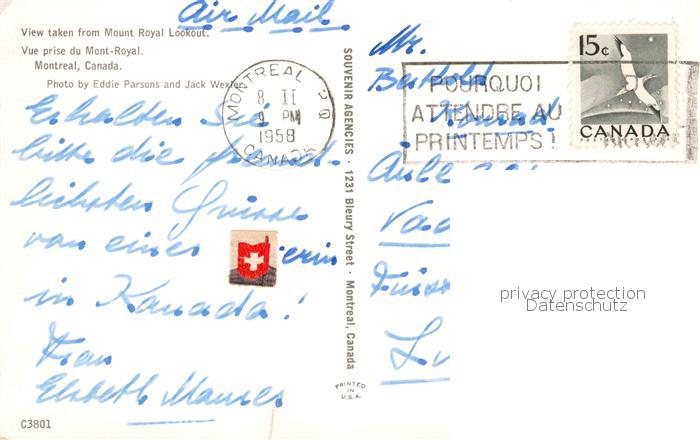 Air Mail
View taken from Mount Royal Lookout.
Vue prise du Mont-Royal.
Montreal, Canada.
Photo by Eddie Parsons and Jack Wexler
MONTREAL P Q
8 II
9 PM
1958
CANADA
Erhalten Sie
bitte die freund-
lichsten Grüsse
von eines erin
in Kanada!
Frau
Elsbeth Maurer
C3801
SOUVENIR AGENCIES · 1231 Bleury Street · Montreal, Canada
PRINTED
IN
U.S.A.
15c
CANADA
POURQUOI
ATTENDRE AU
PRINTEMPS!
Mr.
Berthold
privacy protection
Datenschutz